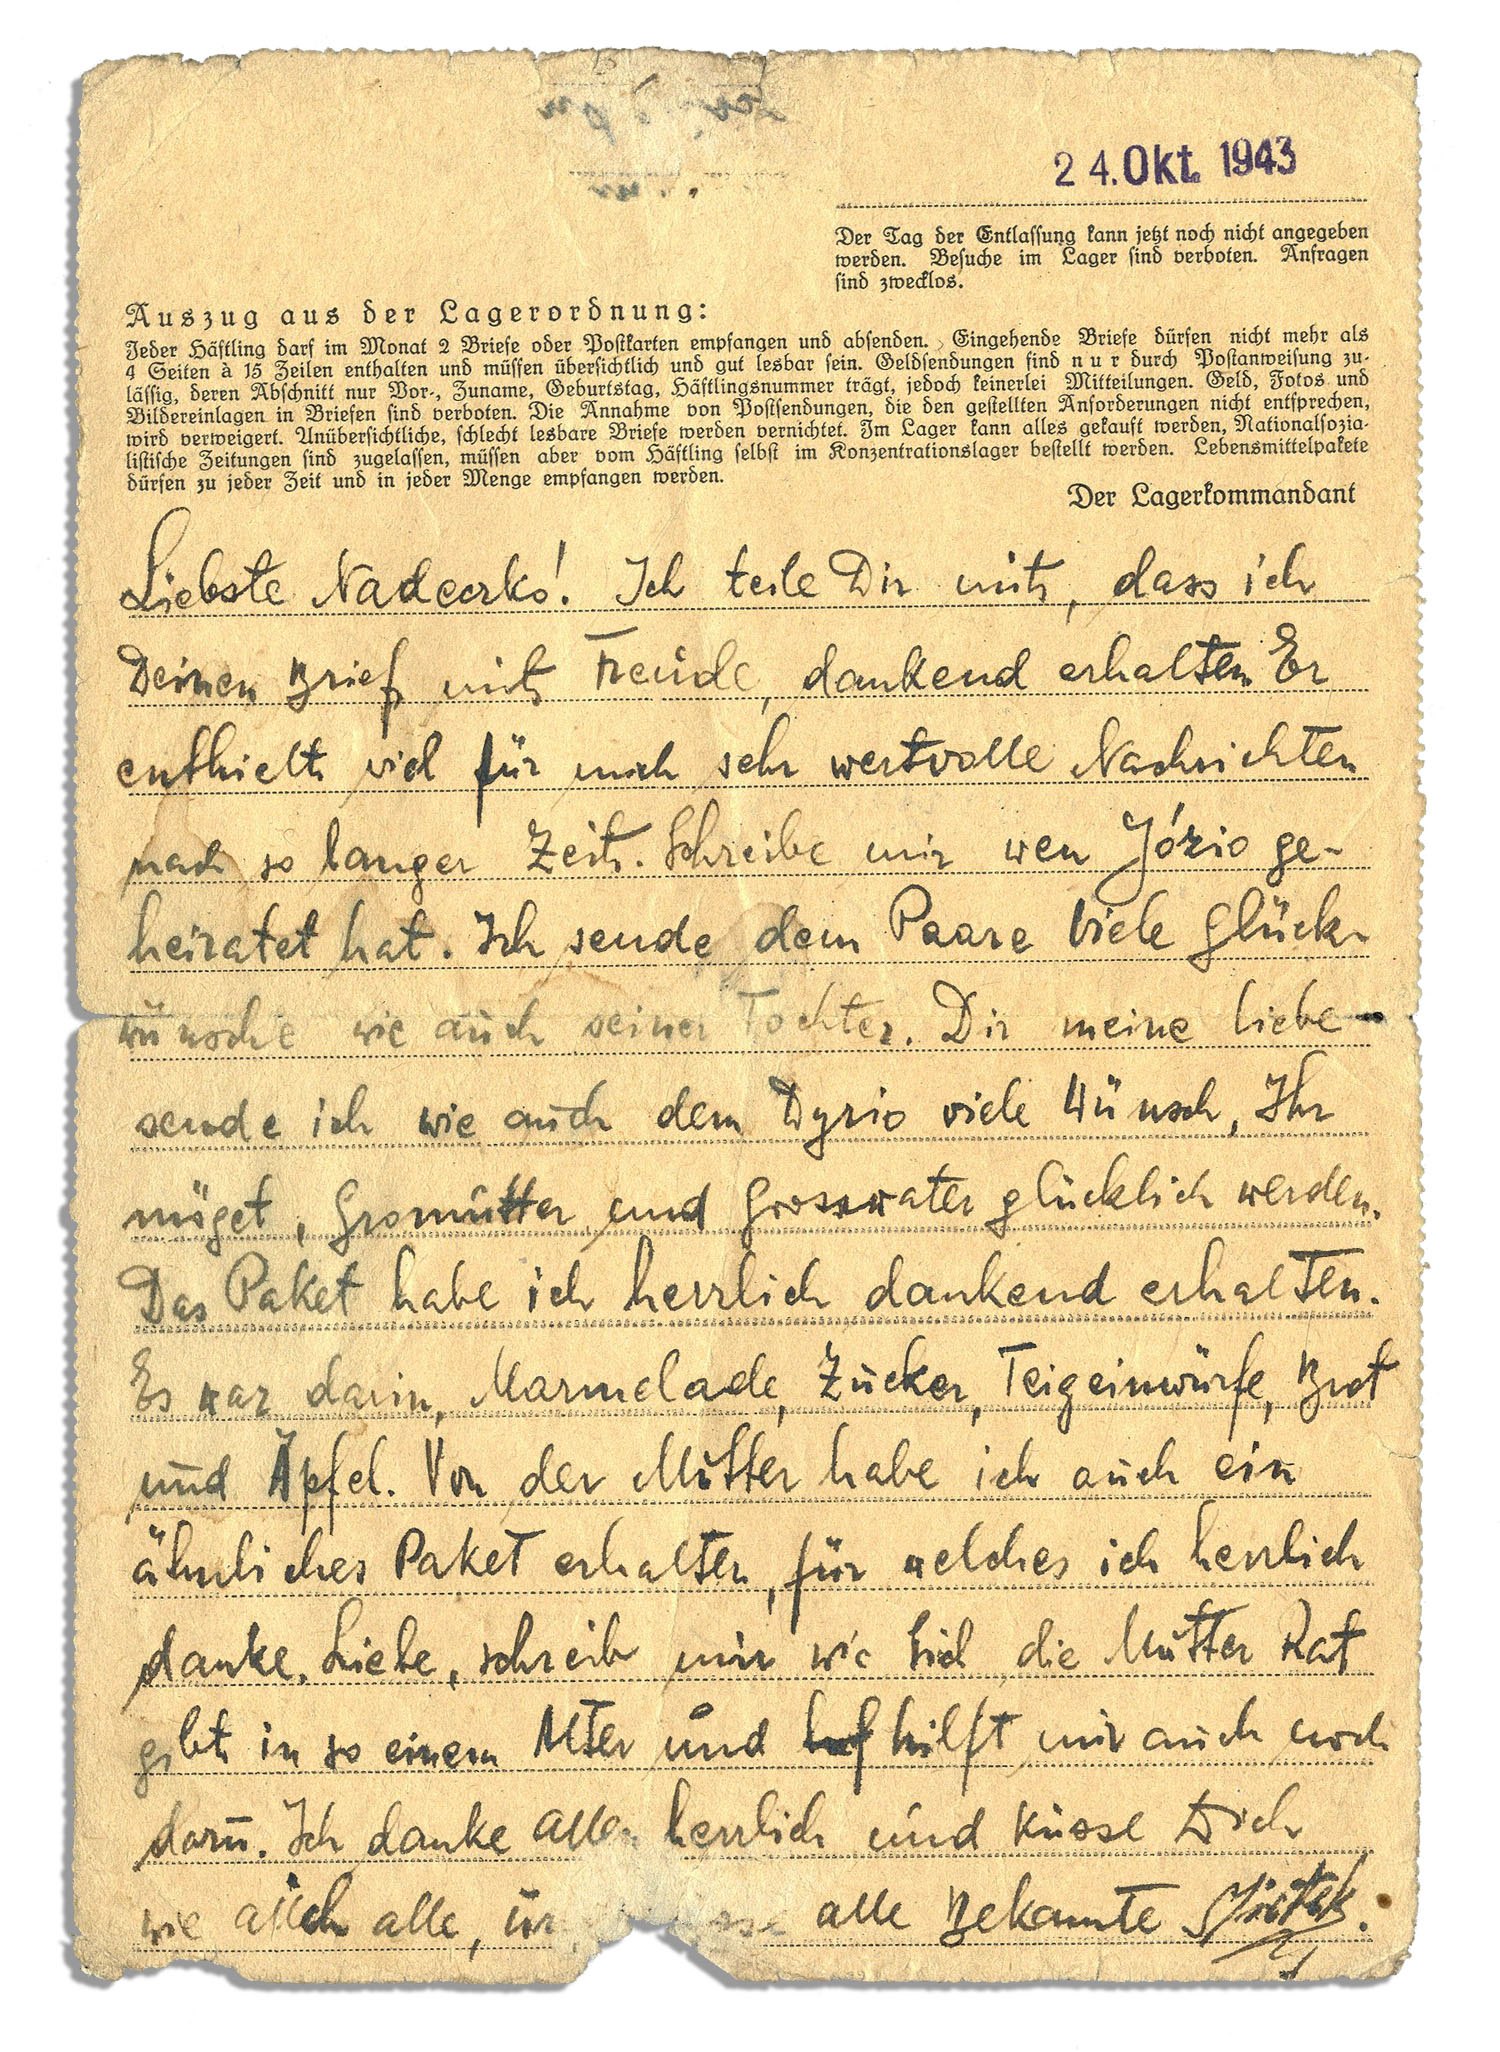 24. Okt. 1943
Der Tag der Entlassung kann jetzt noch nicht angegeben
werden. Besuche im Lager sind verboten. Anfragen
sind zwecklos.
Auszug aus der Lagerordnung:
Jeder Häftling darf im Monat 2 Briefe oder Postkarten empfangen und absenden. Eingehende Briefe dürfen nicht mehr als
4 Seiten à 15 Zeilen enthalten und müssen übersichtlich und gut lesbar sein. Geldsendungen sind nur durch Postanweisung zu-
lässig, deren Abschnitt nur Vor-, Zuname, Geburtstag, Häftlingsnummer trägt, jedoch keinerlei Mitteilungen. Geld, Fotos und
Bildereinlagen in Briefen sind verboten. Die Annahme von Postsendungen, die den gestellten Anforderungen nicht entsprechen,
wird verweigert. Unübersichtliche, schlecht lesbare Briefe werden vernichtet. Im Lager kann alles gekauft werden, Nationalsozia-
listische Zeitungen sind zugelassen, müssen aber vom Häftling selbst im Konzentrationslager bestellt werden. Lebensmittelpakete
dürfen zu jeder Zeit und in jeder Menge empfangen werden.
Der Lagerkommandant
Liebste ! Ich teile Dir mit, dass ich
Deinen Brief mit Freude, dankend erhalten. Er
enthielt viel für mich sehr wertvolle Nachrichten
nach so langer Zeit. Schreibe mir wen Józio ge-
heiratet hat. Ich sende dem Paare viele Glück-
wünsche wie auch seiner Tochter. Dir meine liebe
sende ich wie auch dem Dyzio viele Wünsch, Ihr
möget, Gromutter und Grosswater glücklich werden.
Das Paket habe ich herrlich dankend erhalten.
Es war darin, Marmelade, Zucker, Teigeinwürfe, Brot
und Äpfel. Von der Mutter habe ich auch ein
ähnliches Paket erhalten, für welches ich herrlich
danke. Liebe, schreib mir wie sich die Mutter Rat
gibt in so einem Alter und hilft mir auch noch
darzu. Ich danke allen herrlich und küsse Dich
wie auch alle, alle Bekannte